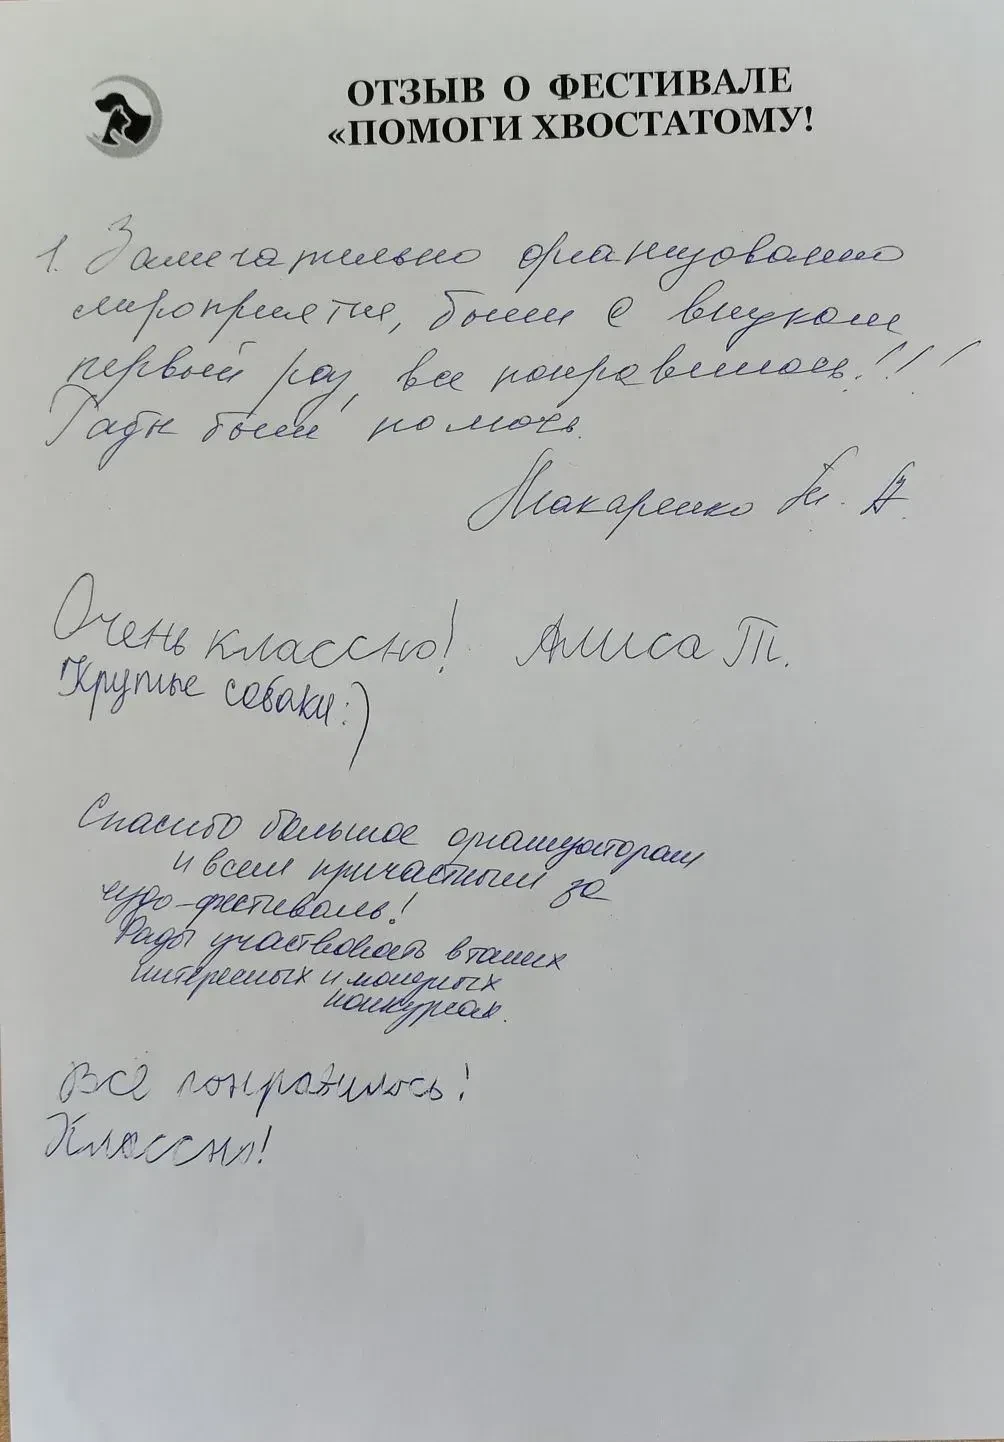 ОТЗЫВ О ФЕСТИВАЛЕ
«ПОМОГИ ХВОСТАТОМУ!
1. Замечательно организовано
мероприятие, были с внуком
первый раз, все понравилось!!!
Рады были помочь.
Макаренко Т. В.
Очень классно! Алиса Т.
Крутые собаки:)
Спасибо большое организаторам
и всем причастным за
чудо-фестиваль!
Рады участвовать в таких
интересных и
конкурсах.
Всё понравилось!
Классно!